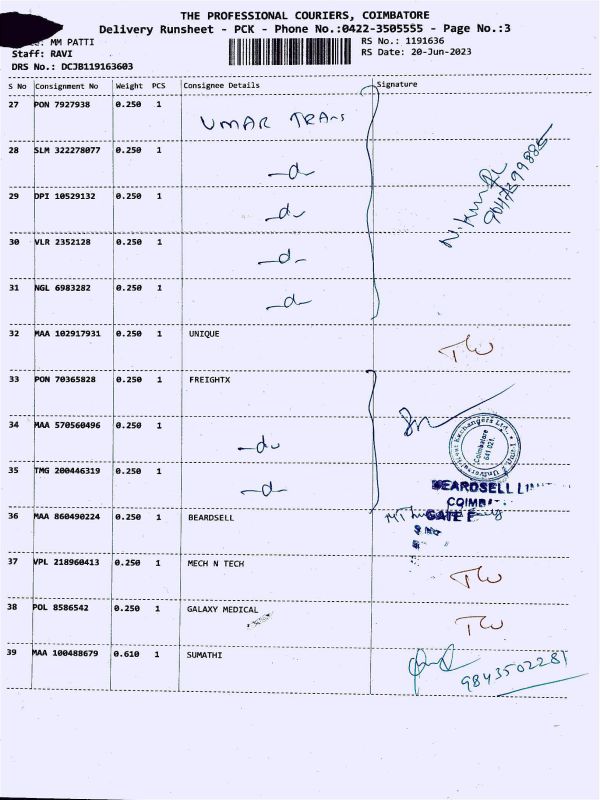 THE PROFESSIONAL COURIERS, COIMBATORE
Delivery Runsheet - PCK - Phone No.:0422-3505555 - Page No.:3
MM PATTI
RS No.: 1191636
Staff: RAVI
RS Date: 20-Jun-2023
DRS No.: DCJB119163603
S No Consignment No Weight PCS Consignee Details Signature
27 PON 7927938 0.250 1 UMAR TRANS
28 SLM 322278077 0.250 1 -do-
29 DPI 10529132 0.250 1 -do-
30 VLR 2352128 0.250 1 -do-
31 NGL 6983282 0.250 1 -do-
32 MAA 102917931 0.250 1 UNIQUE
33 PON 70365828 0.250 1 FREIGHTX
34 MAA 570560496 0.250 1 -do-
35 TMG 200446319 0.250 1 -do-
BEARDSELL
COIMB
36 MAA 860490224 0.250 1 BEARDSELL GATE
37 VPL 218960413 0.250 1 MECH N TECH
38 POL 8586542 0.250 1 GALAXY MEDICAL
39 MAA 100488679 0.610 1 SUMATHI 9843502281